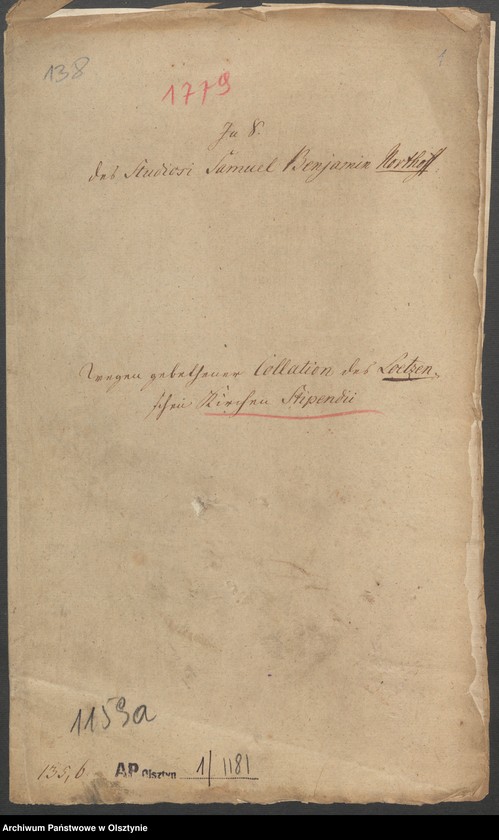 138
1
1779
In S.
des Studiosi Samuel Benjamin Northoff,
wegen gebethener Collation des Loetzen-
schen Kirchen Stipendii
1159a
135, b
AP Olsztyn 1/1181
Archiwum Państwowe w Olsztynie